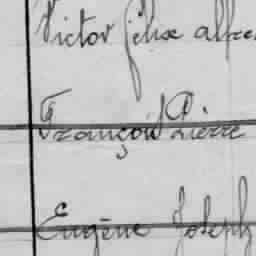 Victor félix alfre
François Pierre
Eugène Joseph